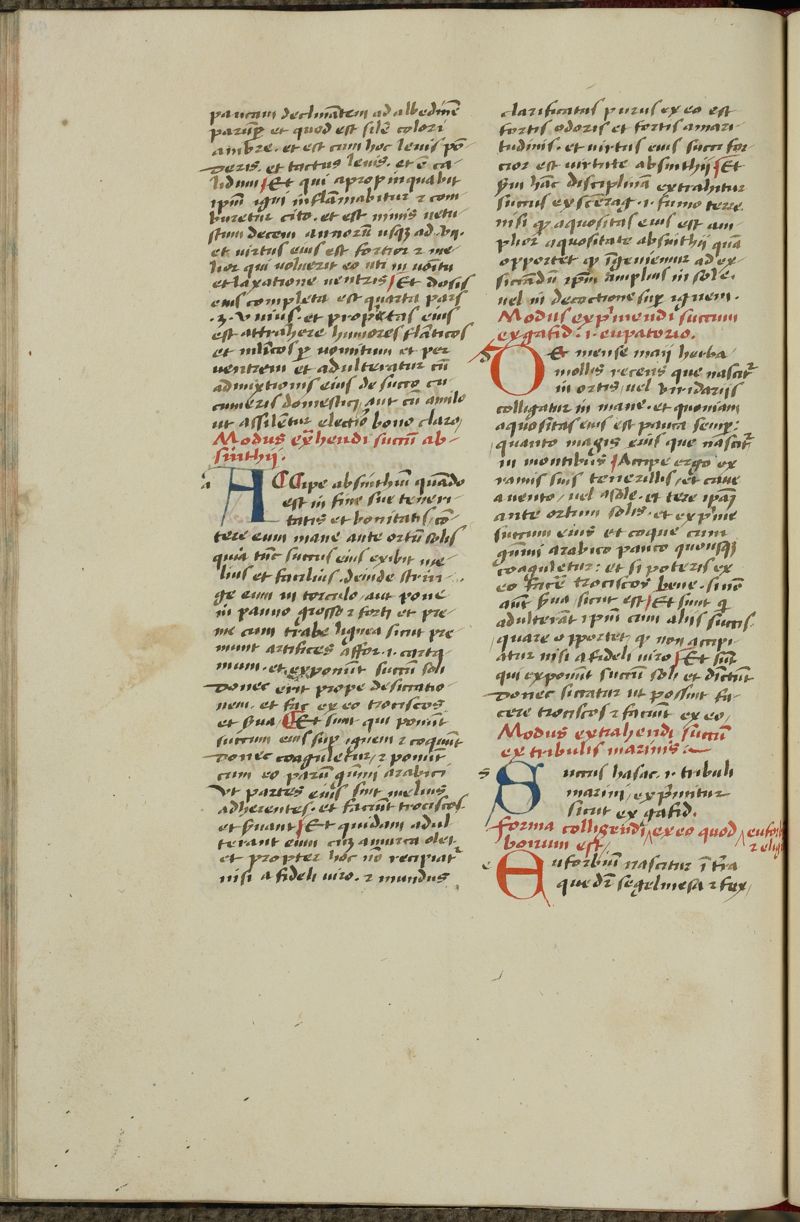 paucam declinātem ad albedinē
parūꝑ et quod est silē colori
ambre. et est cum hoc leuis pō
deris. et tactus leuis. et ē ca
lidum Et qui apropinquabit
ipm̄ igni inflāmabitur ⁊ com
buretur cito. et est minis uetu
stum decem annorū usqꝫ ad .vij.
et virtus eius est fortior ⁊ me
lior qui uoluerit eo uti in uoītu
et laxatione uentris Et dosis
eius completa est quarta pars
.ʒ. vnius. et proprietas eius
est attrahere humores flāticos
et mlīcos ꝑ uomitum et per
uentrem et adulteratur cū
admixtionis eius de succo cu
cumeris domestici aut cū amilo
ut assilētur electio bono claro
Modus exhēndi succū ab
sinthij.
a ACCipe absinthiū quādo
est in fine sue teneri
tatis et bonitatis / cō
tere eum mane ante ortū solis
quia tūc succus eius exibit me
lius et facilius. deinde strin
ge eum in torculo aut pone
in panno grosso ⁊ forti et pre
me cum trabe lignea sicut pre
munt artifices assor .i. carta
mum. et exponūt succū soli
donec erit prope desiccatio
nem. et fac ex eo trociscos
et ẜua Et sunt qui ponūt
succum eius suꝑ ignem ⁊ coquūt
donec coaguletur / ⁊ ponūt
cum eo parū gūmi arabici
Vt partes eius sint melius
adherentes. et faciūt trociscos
et ẜuant Et quidam adul
terant eum cū amurca olei
et propter hoc nō recipiat᷑
nisi a fideli uiro. ⁊ mundus
clarificatus purus ex eo est
fortis odoris et fortis amari
tudinis. et virtus eius succi for
cior est uirtute absinthij Et
ẜm hāc disciplinā extrahitur
succus ex scerag .i. fumo terre
nisi ꝙ aquositas eius est am
plior aquositate absinthij quā
opportet ꝙ īgeniemur ad ex
siccādū ipm̄ amplius in sole.
uel in decoctione suꝑ ignem.
Modus exp̄mendi succum
ex gafid .i. eupatorio.
d DE mense maij herba
mollis recens que nascit᷑
in ortis / uel viridarijs
colligatur in mane. et quoniam
aquositas eius est pauca semꝑ:
quanto magis eius que nascit᷑
in montibus Accipe ergo ex
ramis suis tenerillis / et caue
a uento / uel a sole. et tere ipaꝫ
ante ortum solis. et exp̄me
succum eius et coque cum
gūmi arabico pauco quousqꝫ
coaguletur: et si poteris ex
eo facē trociscos bene. si nō
aūt ẜua / sicut est Et sunt q̄
adulterāt ipm̄ cum alijs succis.
quare opportet ꝙ non accipi
atur nisi a fideli uiro Et sūt
qui exponūt succū soli et dīctūt
donec siccatur ut possint fa
cere trociscos ⁊ faciūt ex eo
Modus extrahendi succū
ex tribulis marinis :
s Succus hasac .i. tribuli
marini / exp̄mitur
sicut ex gafid.
Forma colligendi ex eo quod eufor
bonum est / ⁊ elig
e Euforbiū nascitur ī t̄ra
que dr̄ segelmesa ⁊ fex /